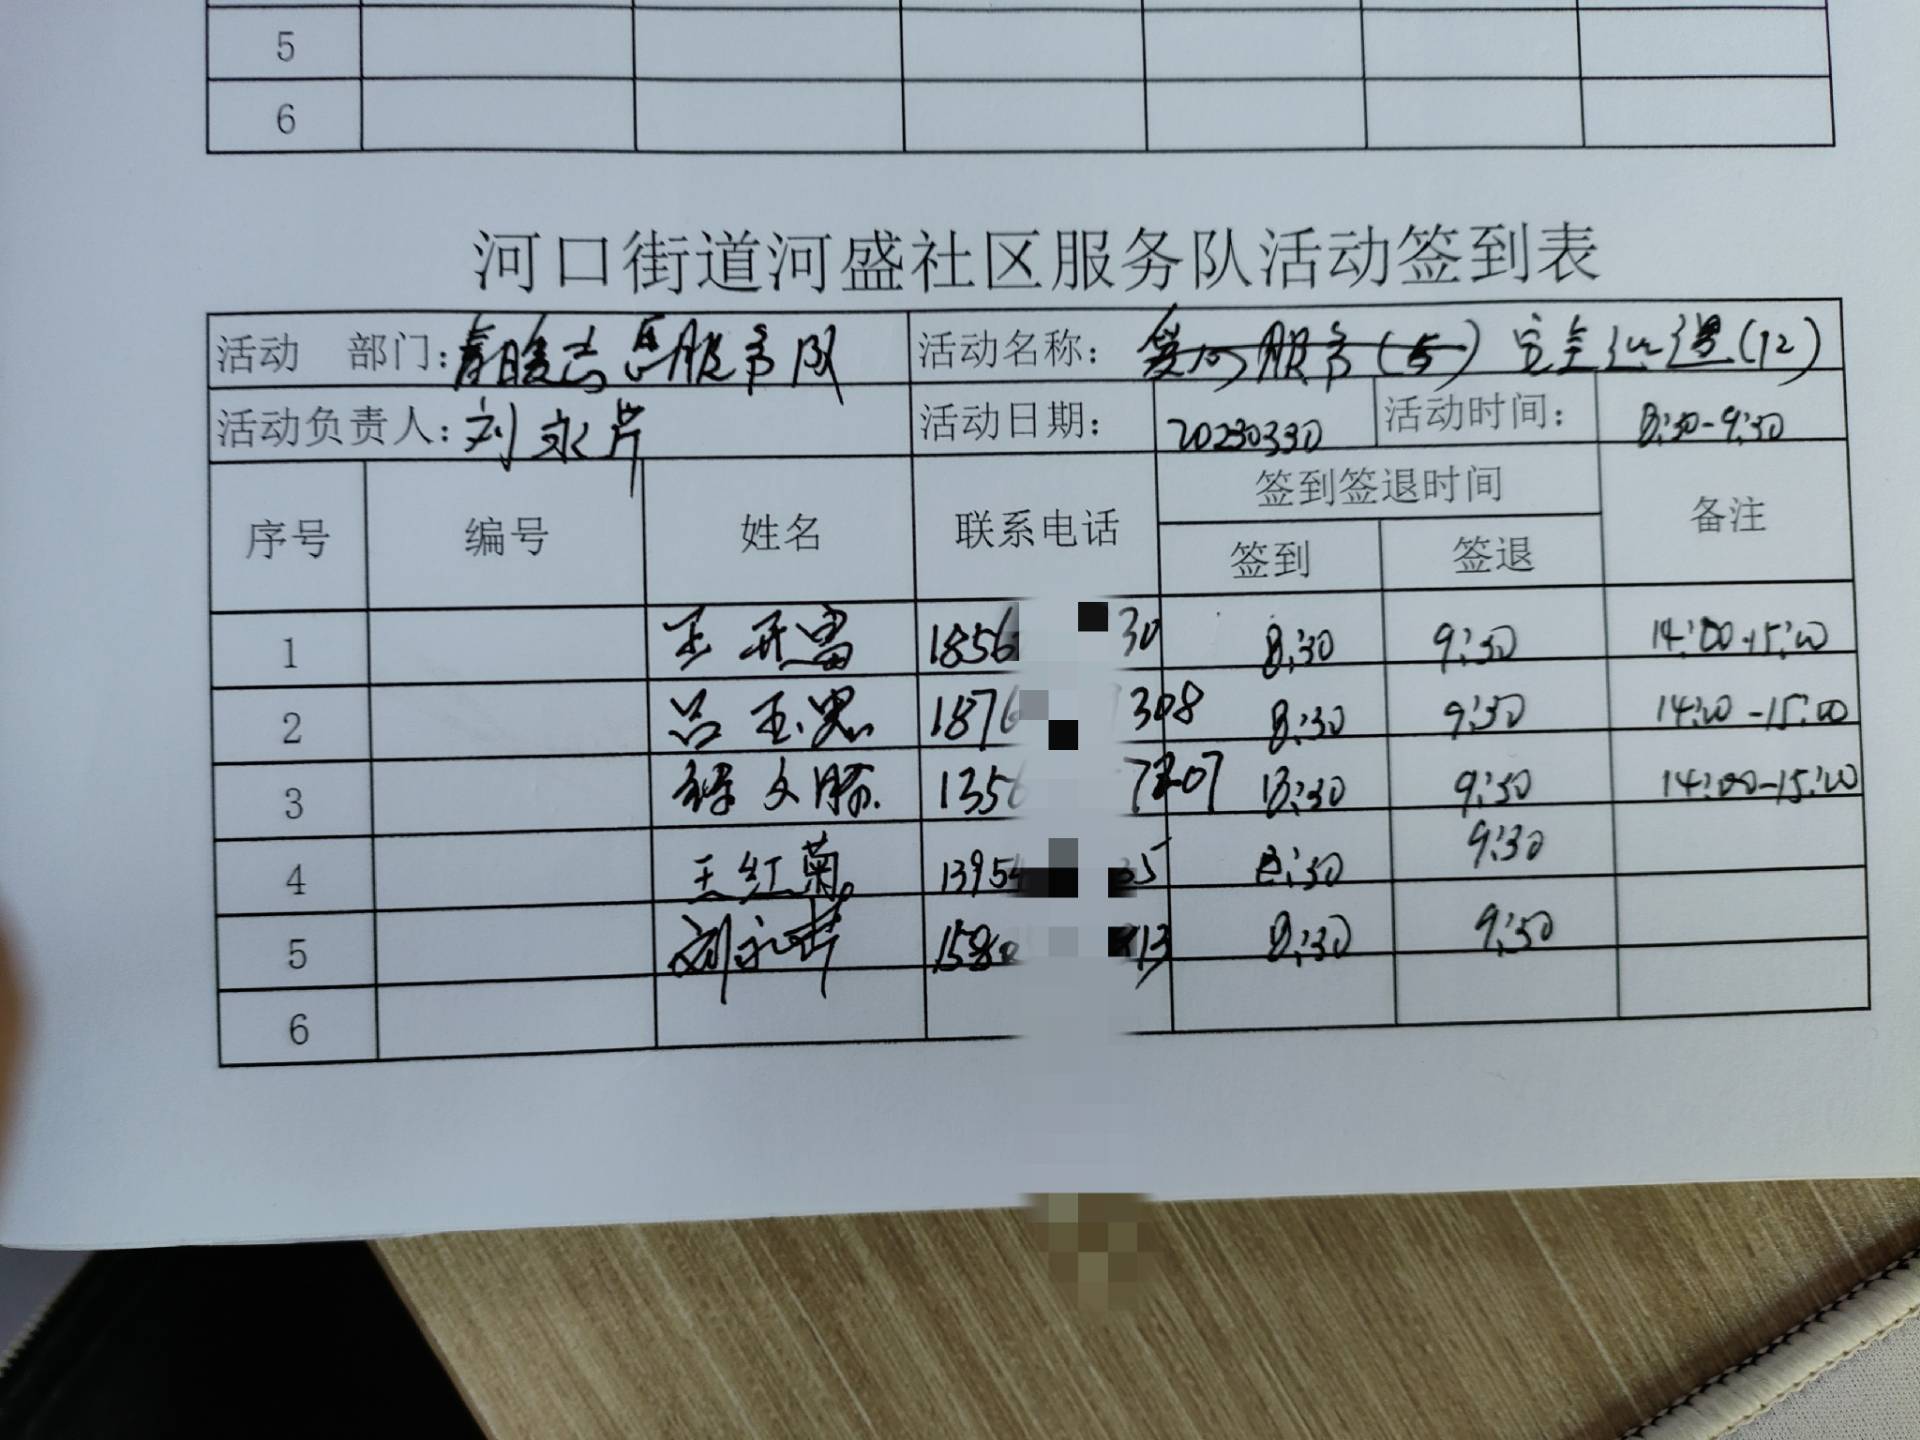 5
6
河口街道河盛社区服务队活动签到表
活动 部门: 春暖志愿服务队 活动名称: 服务(5) 安全巡逻(12)
活动负责人: 刘永芹 活动日期: 20230330 活动时间: 8:30-9:30
序号 编号 姓名 联系电话 签到签退时间 备注
签到 签退
1 王开富 1856 30 8:30 9:30 14:00-15:00
2 吕玉忠 1876 308 8:30 9:30 14:00-15:00
3 文 1356 07 8:30 9:30 14:00-15:00
4 王红菊 1395 35 8:30 9:30
5 刘永芹 158 13 8:30 9:30
6